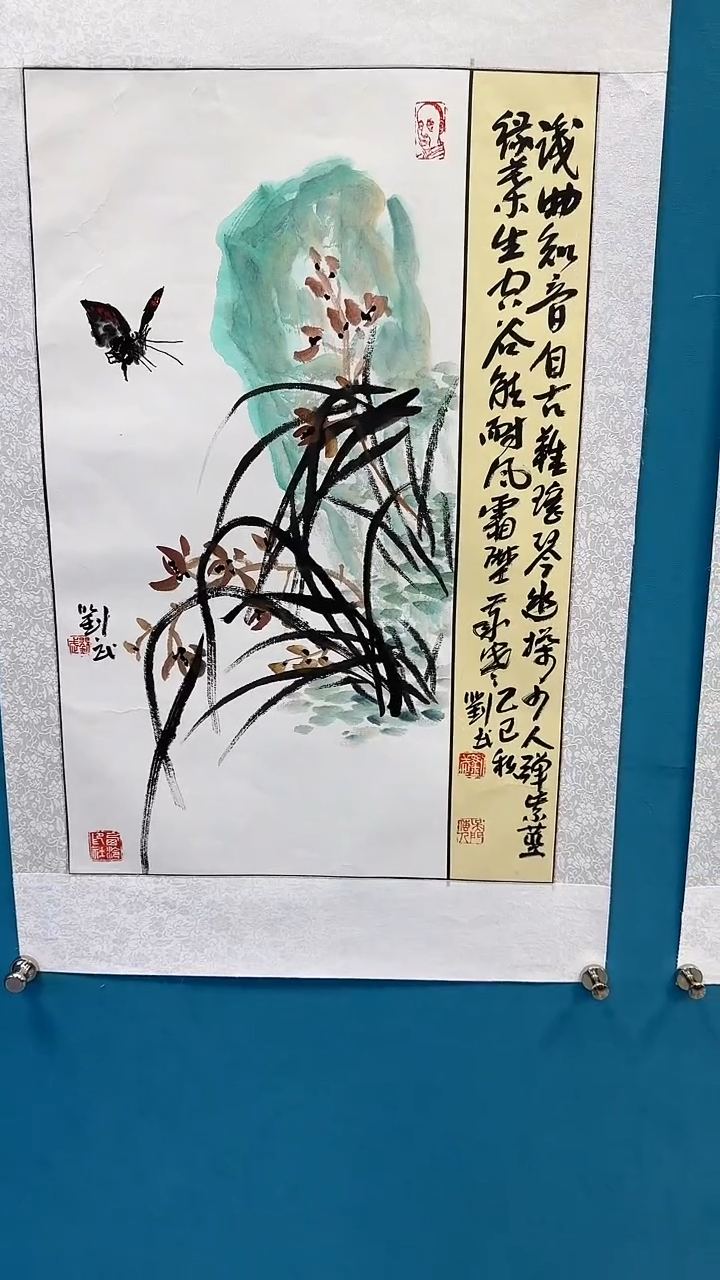 識曲知音自古難瑶琴幽操少人彈紫莖
緑葉生空谷能耐風霜歷歲寒
乙巳秋
劉武
劉武